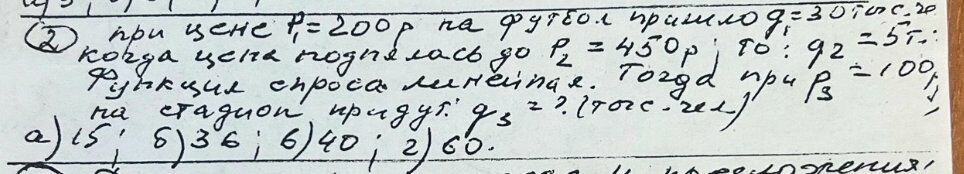 ② при цене P₁=200р на футбол пришло q₁=30тыс.че
когда цена поднялась до P₂=450р, то: q₂=5т.:
Функция спроса линейная. Тогда при P₃=100р,
на стадион придут: q₃=? (тыс.чел)
а) 15; б) 36; в) 40; г) 60.